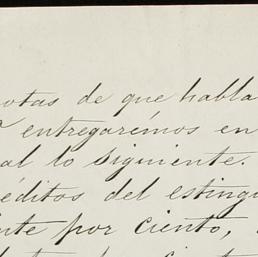 otas de que habla
entregarémos en
al lo siguiente.
éditos del esting
nte por ciento,